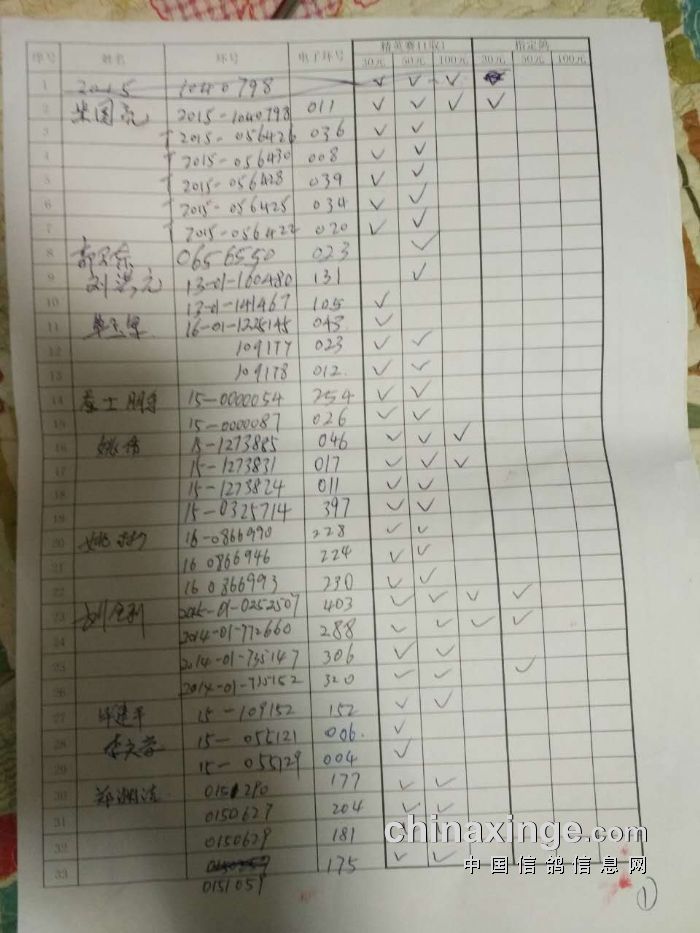 序号 姓名 环号 电子环号 精英赛 指定鸽
30元 50元 100元 30元 50元 100元
1 2015 1040798 ✓ ✓ ✓
2 2015-1040798 011 ✓ ✓ ✓ ✓
3 2015-056426 036 ✓ ✓
4 2015-056430 008 ✓ ✓
5 2015-056428 039 ✓ ✓
6 2015-056425 034 ✓ ✓
7 2015-056422 020 ✓ ✓
8 0656550 023 ✓
9 13-01-160480 131 ✓
10 13-01-141467 105 ✓
11 16-01-1225145 043 ✓
12 109177 023 ✓ ✓
13 109178 012. ✓ ✓
14 15-0000054 254 ✓ ✓
15 15-0000087 026 ✓ ✓
16 15-1273885 046 ✓ ✓ ✓
17 15-1273831 017 ✓ ✓ ✓
18 15-1273824 011 ✓ ✓
19 15-0325714 397 ✓ ✓
20 16-0866990 228 ✓ ✓
21 16 0866946 224 ✓ ✓
22 16 0866993 230 ✓ ✓
23 01-0252507 403 ✓ ✓ ✓ ✓
24 2014-01-772660 288 ✓ ✓ ✓ ✓
25 2014-01-735147 306 ✓ ✓
26 2014-01-735152 320 ✓ ✓ ✓
27 15-109152 152 ✓ ✓
28 15-055121 006. ✓
29 15-055129 004 ✓
30 177 ✓ ✓
31 0150627 204 ✓ ✓
32 0150629 181 ✓ ✓
33 0151059 175 ✓ ✓
chinaxinge.com
中国信鸽信息网
①